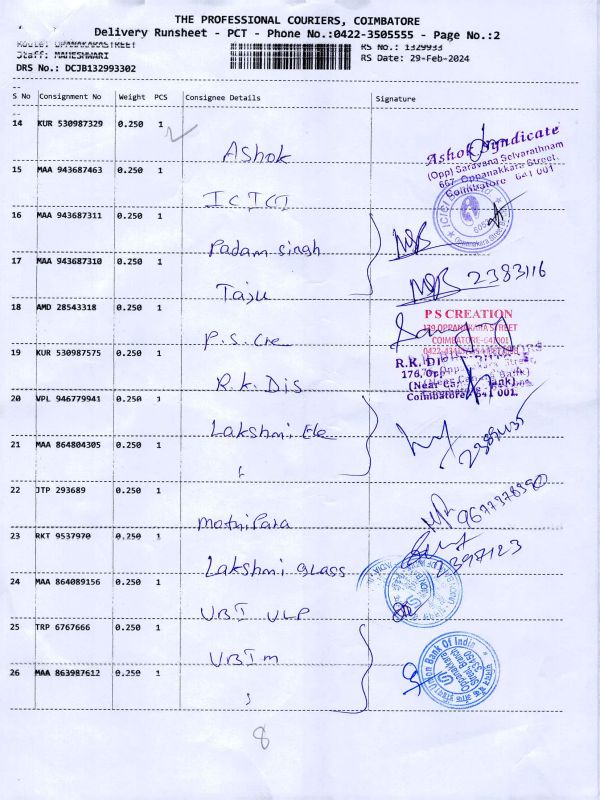 THE PROFESSIONAL COURIERS, COIMBATORE
Delivery Runsheet - PCT - Phone No.:0422-3505555 - Page No.:2
Route: OPANAKARASTREET
RS No.: 1329933
Staff: MAHESHWARI
RS Date: 29-Feb-2024
DRS No.: DCJB132993302
S No Consignment No Weight PCS Consignee Details Signature
14 KUR 530987329 0.250 1 Ashok
Ashok Syndicate
(Opp) Saravana Selvarathnam
667, Oppanakkara Street,
Coimbatore - 641 001
15 MAA 943687463 0.250 1 ICICI
16 MAA 943687311 0.250 1 Padam singh
17 MAA 943687310 0.250 1 Taju
2383116
18 AMD 28543318 0.250 1 P.S. Cre
P S CREATION
139 OPPANAKARA STREET
COIMBATORE-641001
19 KUR 530987575 0.250 1 R.k. Dis
R.K. DI
176, Opp
(Near
Coimbatore 641 001.
20 VPL 946779941 0.250 1 Lakshmi Ele
21 MAA 864804305 0.250 1 "
22 JTP 293689 0.250 1
23 RKT 9537970 0.250 1 Lakshmi glass
24 MAA 864089156 0.250 1 UBI ULP
25 TRP 6767666 0.250 1 UBI m
Union Bank Of India
Oppanakara
Street Branch
26 MAA 863987612 0.250 1 "
8